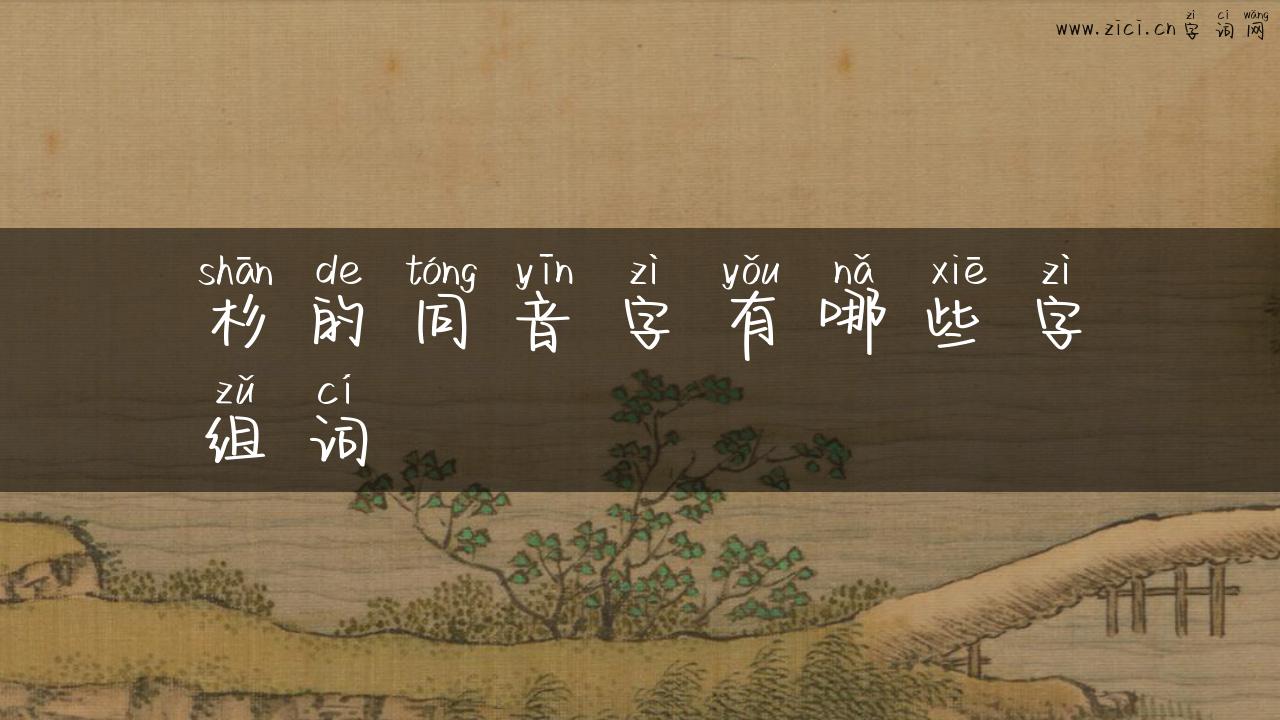 zì cí wǎng
www.zici.cn字词网
shān de tóng yīn zì yǒu nǎ xiē zì
杉的同音字有哪些字
zǔ cí
组词